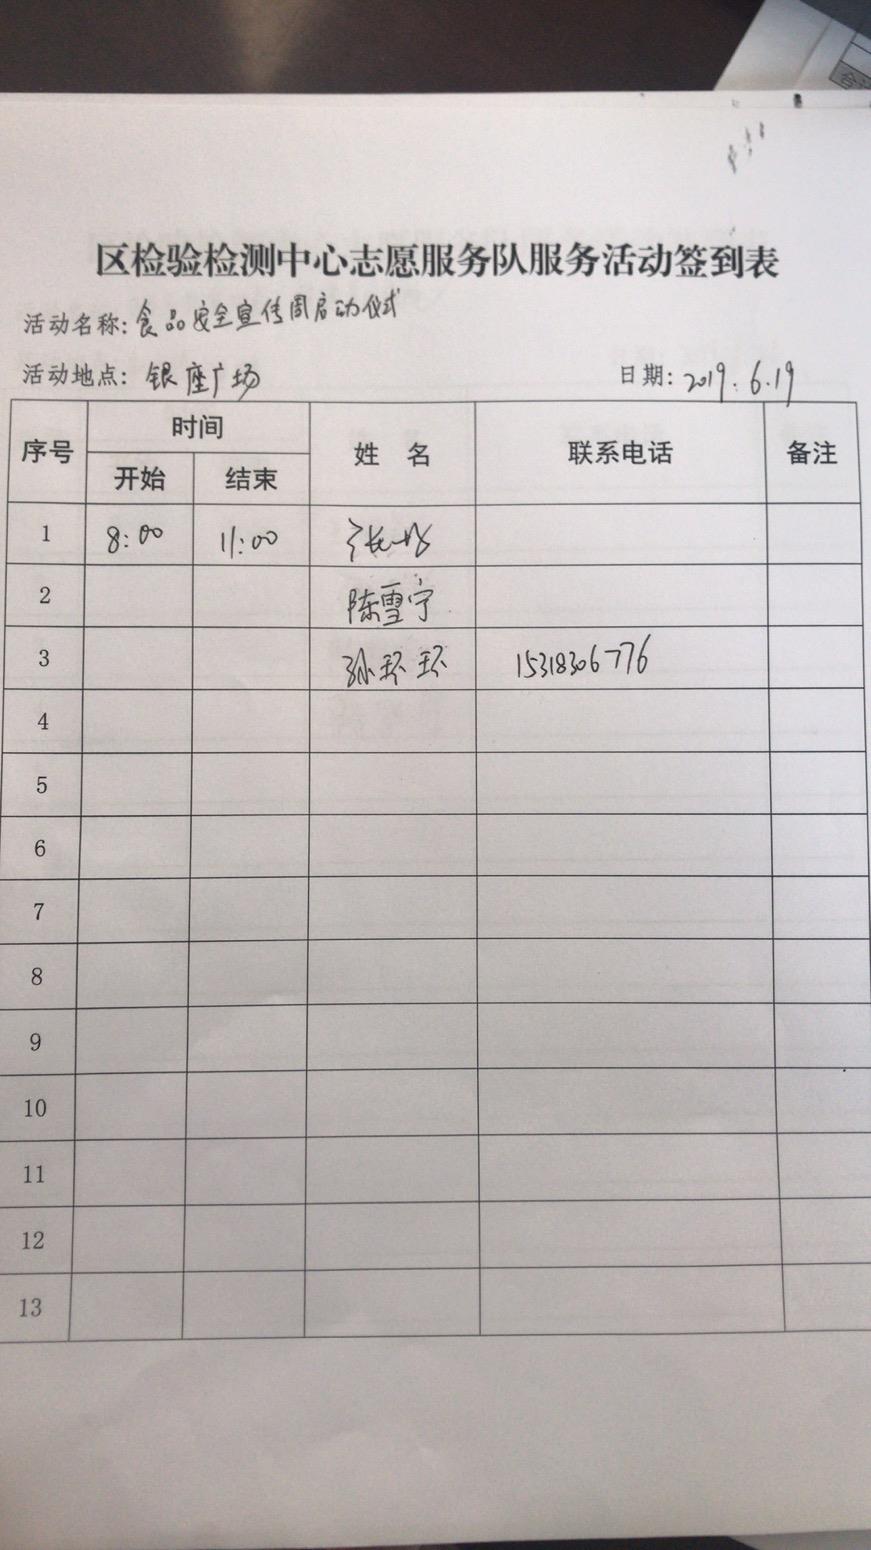 区检验检测中心志愿服务队服务活动签到表
活动名称: 食品安全宣传周启动仪式
活动地点: 银座广场 日期: 2019.6.19
序号 时间 姓 名 联系电话 备注
开始 结束
1 8:00 11:00 张
2 陈雪宁
3 孙环环 15318306776
4
5
6
7
8
9
10
11
12
13